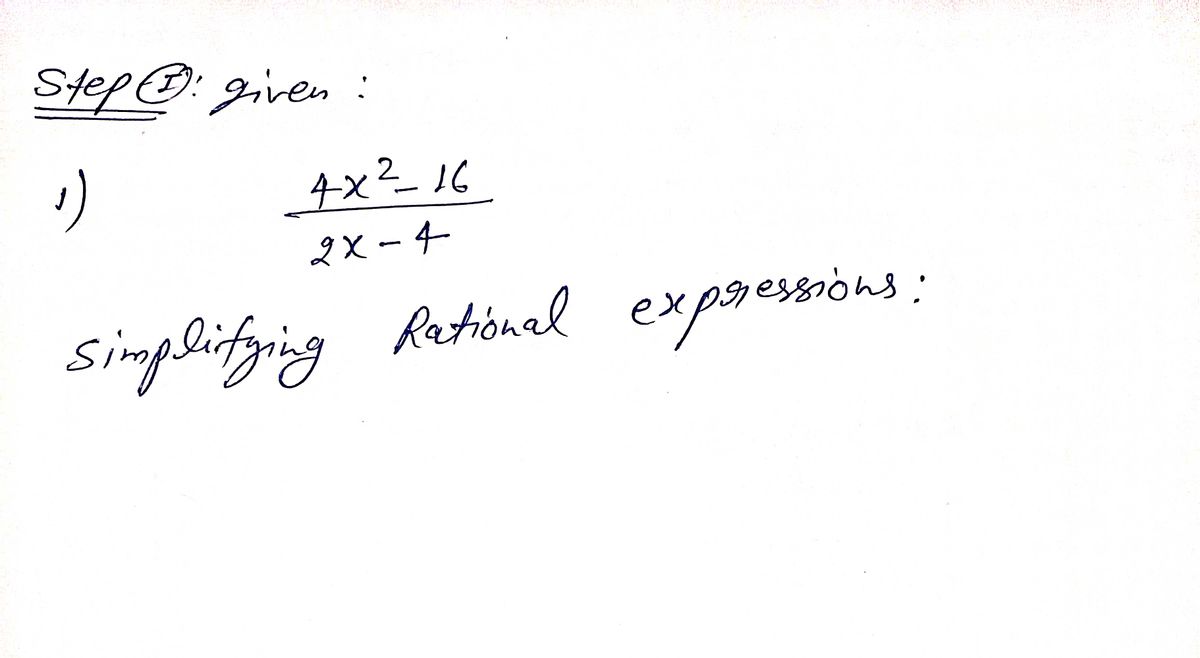 Step (I): given :
1) 4x² - 16
2x - 4
Simplifying Rational expressions :